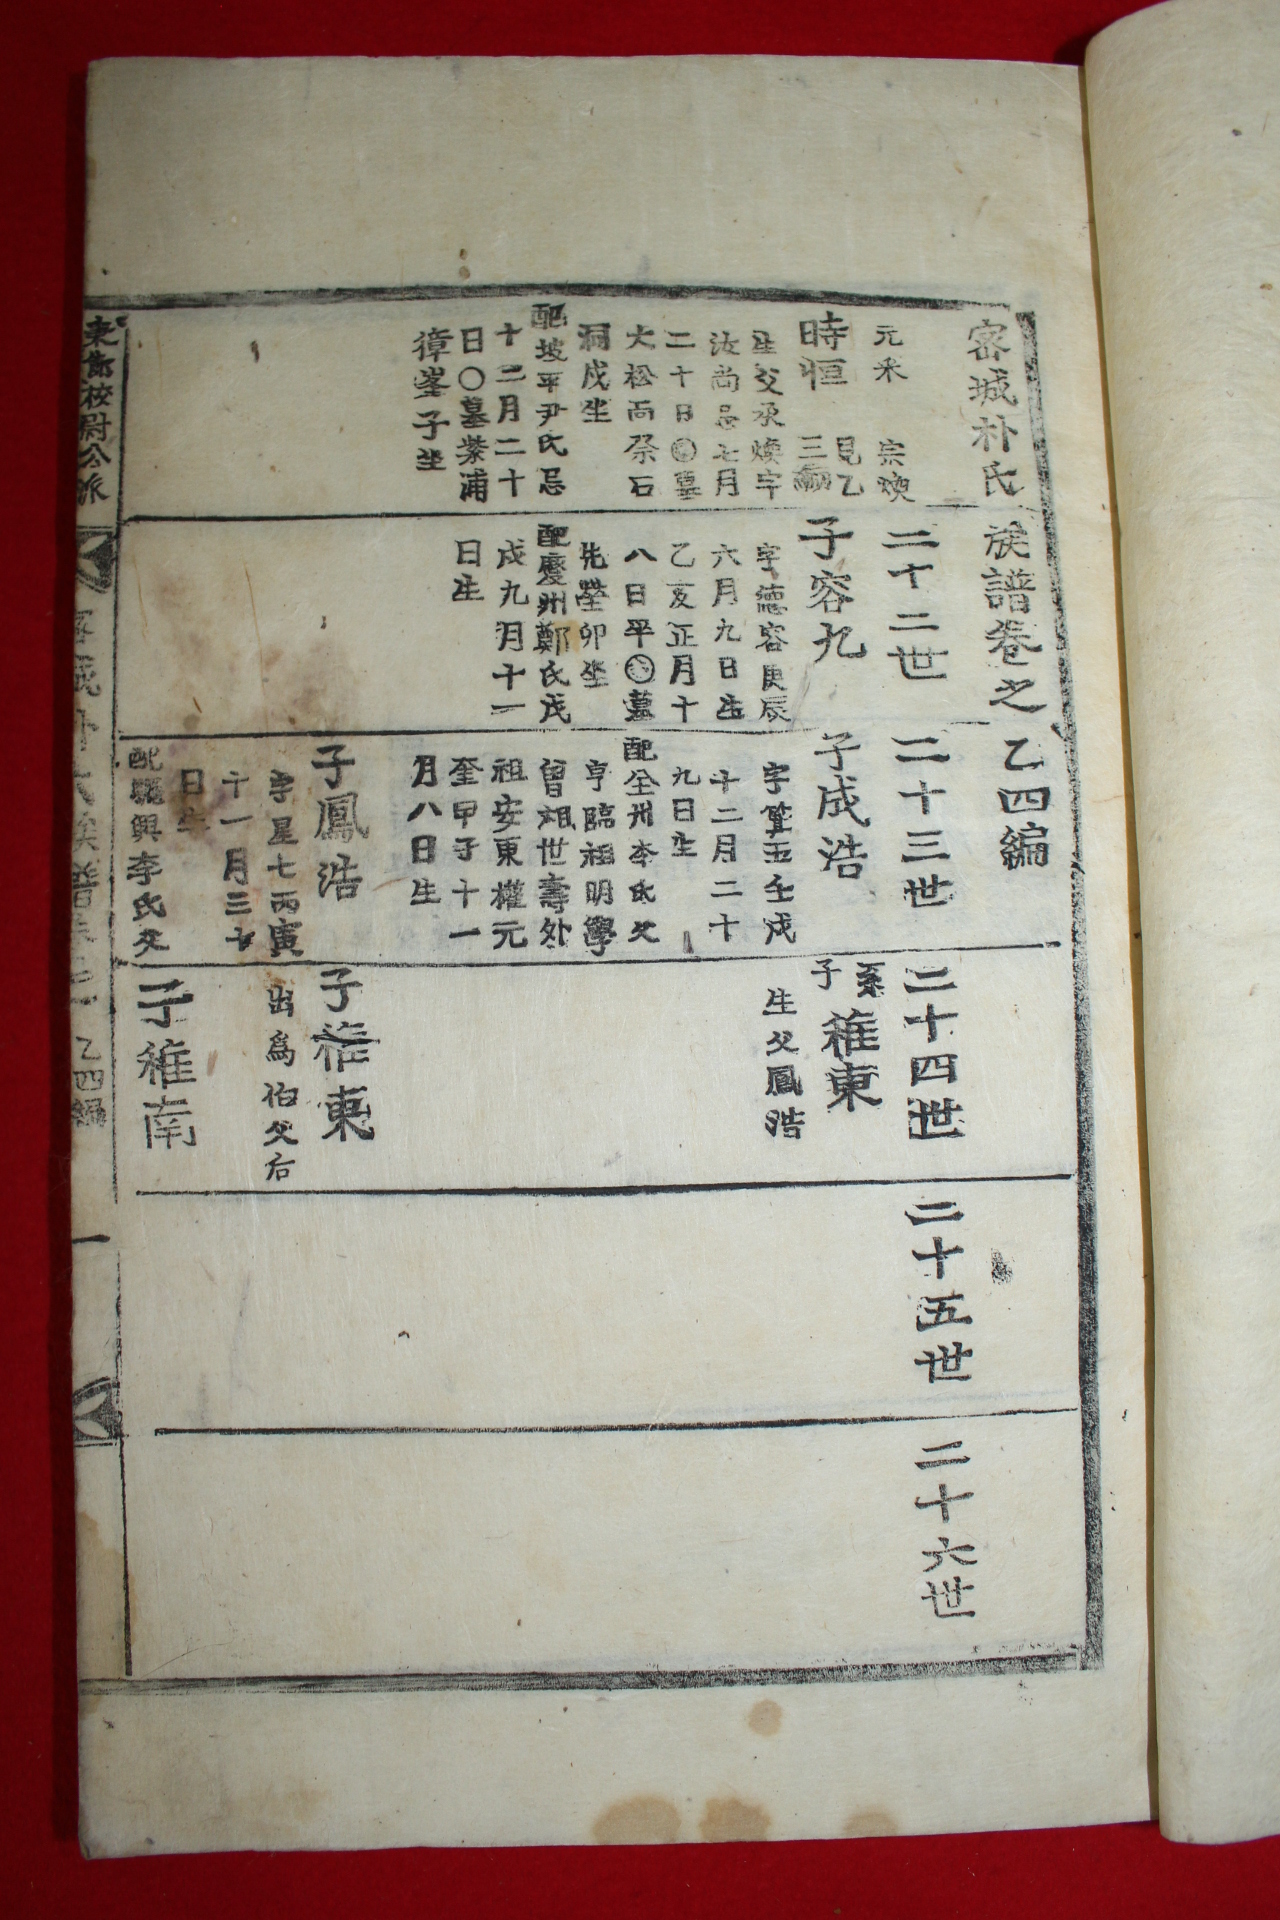 密城朴氏族譜卷之乙四編
元來 宗煥
時恒 見乙三編
生父承煥字
汝尚忌七月
二十日〇墓
大松面祭石
洞戌坐
配坡平尹氏忌
十二月二十
日〇墓紫浦
獐峯子坐
二十二世
子容九
字德容庚辰
六月九日生
乙亥正月十
八日卒〇墓
先塋卯坐
配慶州鄭氏戊
戌九月十一
日生
二十三世
子成浩
字 五壬戌
十二月二十
九日生
配全州李氏父
亨臨祖明學
曾祖世壽外
祖安東權元
奎甲子十一
月八日生
子鳳浩
字星七丙寅
十一月三十
日生
配驪興李氏父
二十四世
系子稚東
生父鳳浩
子稚東
出爲伯父后
子稚南
二十五世
二十六世
東 校尉公派
密城朴氏族譜卷之 乙四編
一